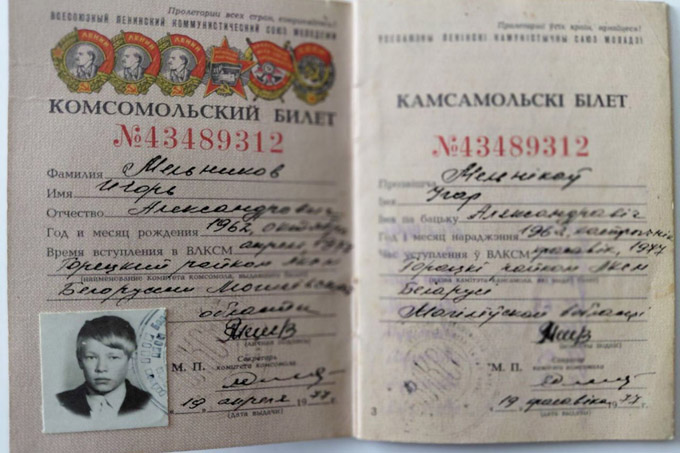 Пролетарии всех стран, соединяйтесь!
ВСЕСОЮЗНЫЙ ЛЕНИНСКИЙ КОММУНИСТИЧЕСКИЙ СОЮЗ МОЛОДЕЖИ
ЛЕНИН ЛЕНИН ЛЕНИН
КОМСОМОЛЬСКИЙ БИЛЕТ
№43489312
Фамилия Мельников
Имя Игорь
Отчество Александрович
Год и месяц рождения 1962, октябрь
Время вступления в ВЛКСМ апрель, 1977
Горецкий райком ЛКСМ
(наименование комитета комсомола,
Белоруссии Могилёвской
области
(личная подпись)
М. П. Секретарь
комитета комсомола
„19 апреля 1977
(дата выдачи)
Пралетарыі ўсіх краін, яднайцеся!
УСЕСАЮЗНЫ ЛЕНІНСКІ КАМУНІСТЫЧНЫ САЮЗ МОЛАДЗІ
КАМСАМОЛЬСКІ БІЛЕТ
№43489312
Прозвішча Мельнікаў
Імя Ігар
Імя па бацьку Александравіч
Год і месяц нараджэння 1962, кастрычнік
Час уступлення ў ВЛКСМ красавік, 1977
Горацкі райком ЛКСМ
Беларусі
Магілёўскай вобласці
М. П. Сакратар
камітэта камсамола
„19 красавіка 1977
(дата выдачы)
3